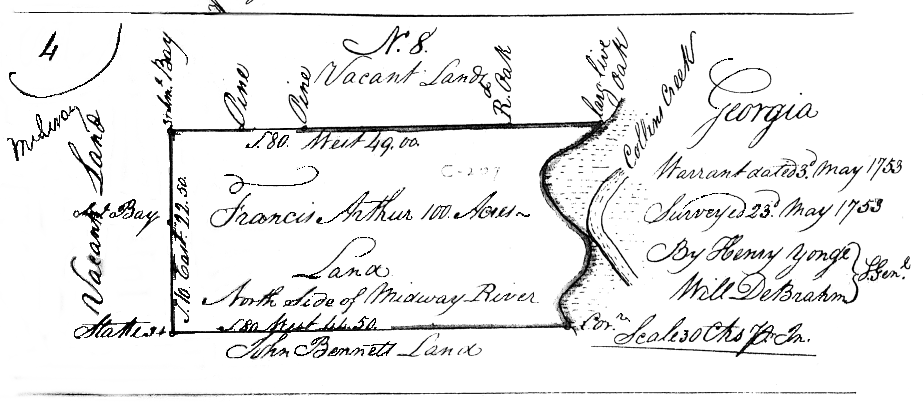 4
Midway
N. 8.
Vacant Land
Pine
Pine
R. Oak
Larg live
Oak
Collins Creek
Vacant Land
Bay
Bay
S. 80. West 49,00.
C-297
East. 22.50.
Francis Arthur 100 Acres
Land
North Side of Midway River
S 80 West 44.50.
Stake
Cor.n
John Bennett Land
Georgia
Warrant dated 3.d May 1753
Surveyed 23.d May 1753
By Henry Yonge
Will DeBrahm
S Gen.l
Scale 30 Chs Pr In.